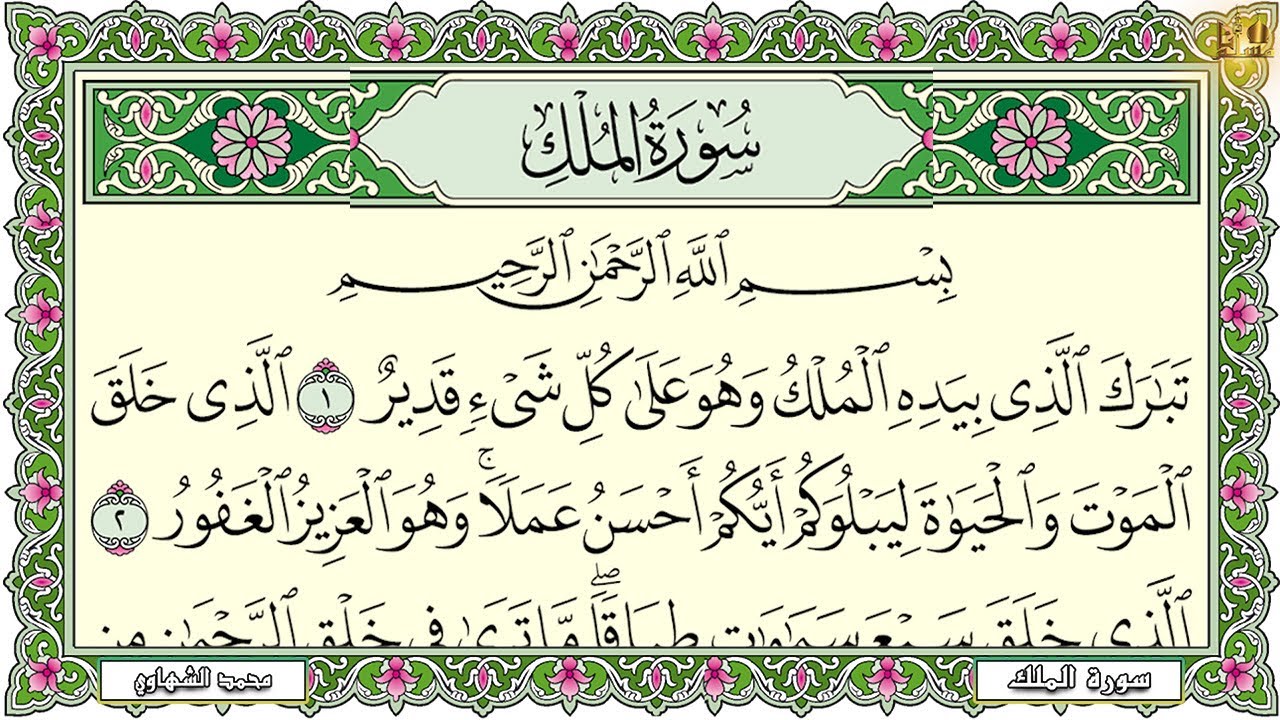 سُورَةُ الْمُلْكِ
بِسْمِ ٱللَّهِ ٱلرَّحْمَٰنِ ٱلرَّحِيمِ
تَبَٰرَكَ ٱلَّذِى بِيَدِهِ ٱلْمُلْكُ وَهُوَ عَلَىٰ كُلِّ شَىْءٍ قَدِيرٌ ١ ٱلَّذِى خَلَقَ
ٱلْمَوْتَ وَٱلْحَيَوٰةَ لِيَبْلُوَكُمْ أَيُّكُمْ أَحْسَنُ عَمَلًاۚ وَهُوَ ٱلْعَزِيزُ ٱلْغَفُورُ ٢
ٱلَّذِى خَلَقَ سَبْعَ سَمَٰوَٰتٍ طِبَاقًاۖ مَّا تَرَىٰ فِى خَلْقِ ٱلرَّحْمَٰنِ مِن
سورة الملك
محمد الشهاوي